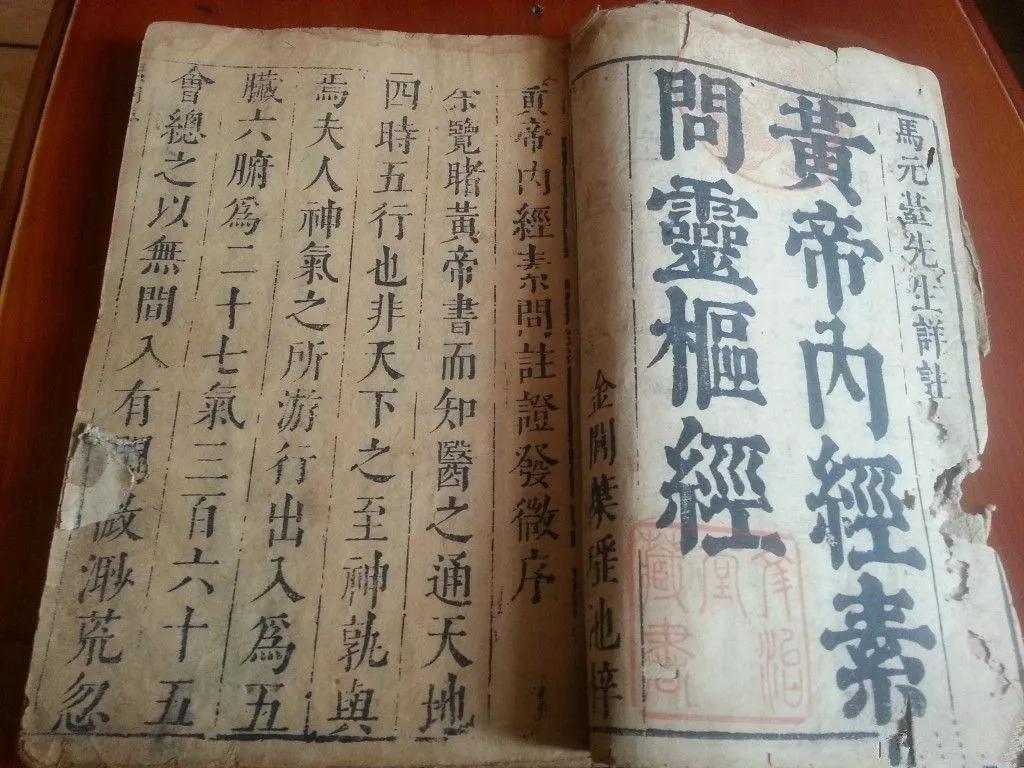 馬元臺先生詳註
黃帝內經素
問靈樞經
金閶葉瑤池梓
藏書
黃帝內經素問註證發微序
余覽睹黃帝書而知醫之通天地
四時五行也非天下之至神孰與
焉夫人神氣之所游行出入為五
臟六腑為二十七氣三百六十五
會總之以無間入有間微渺荒忽